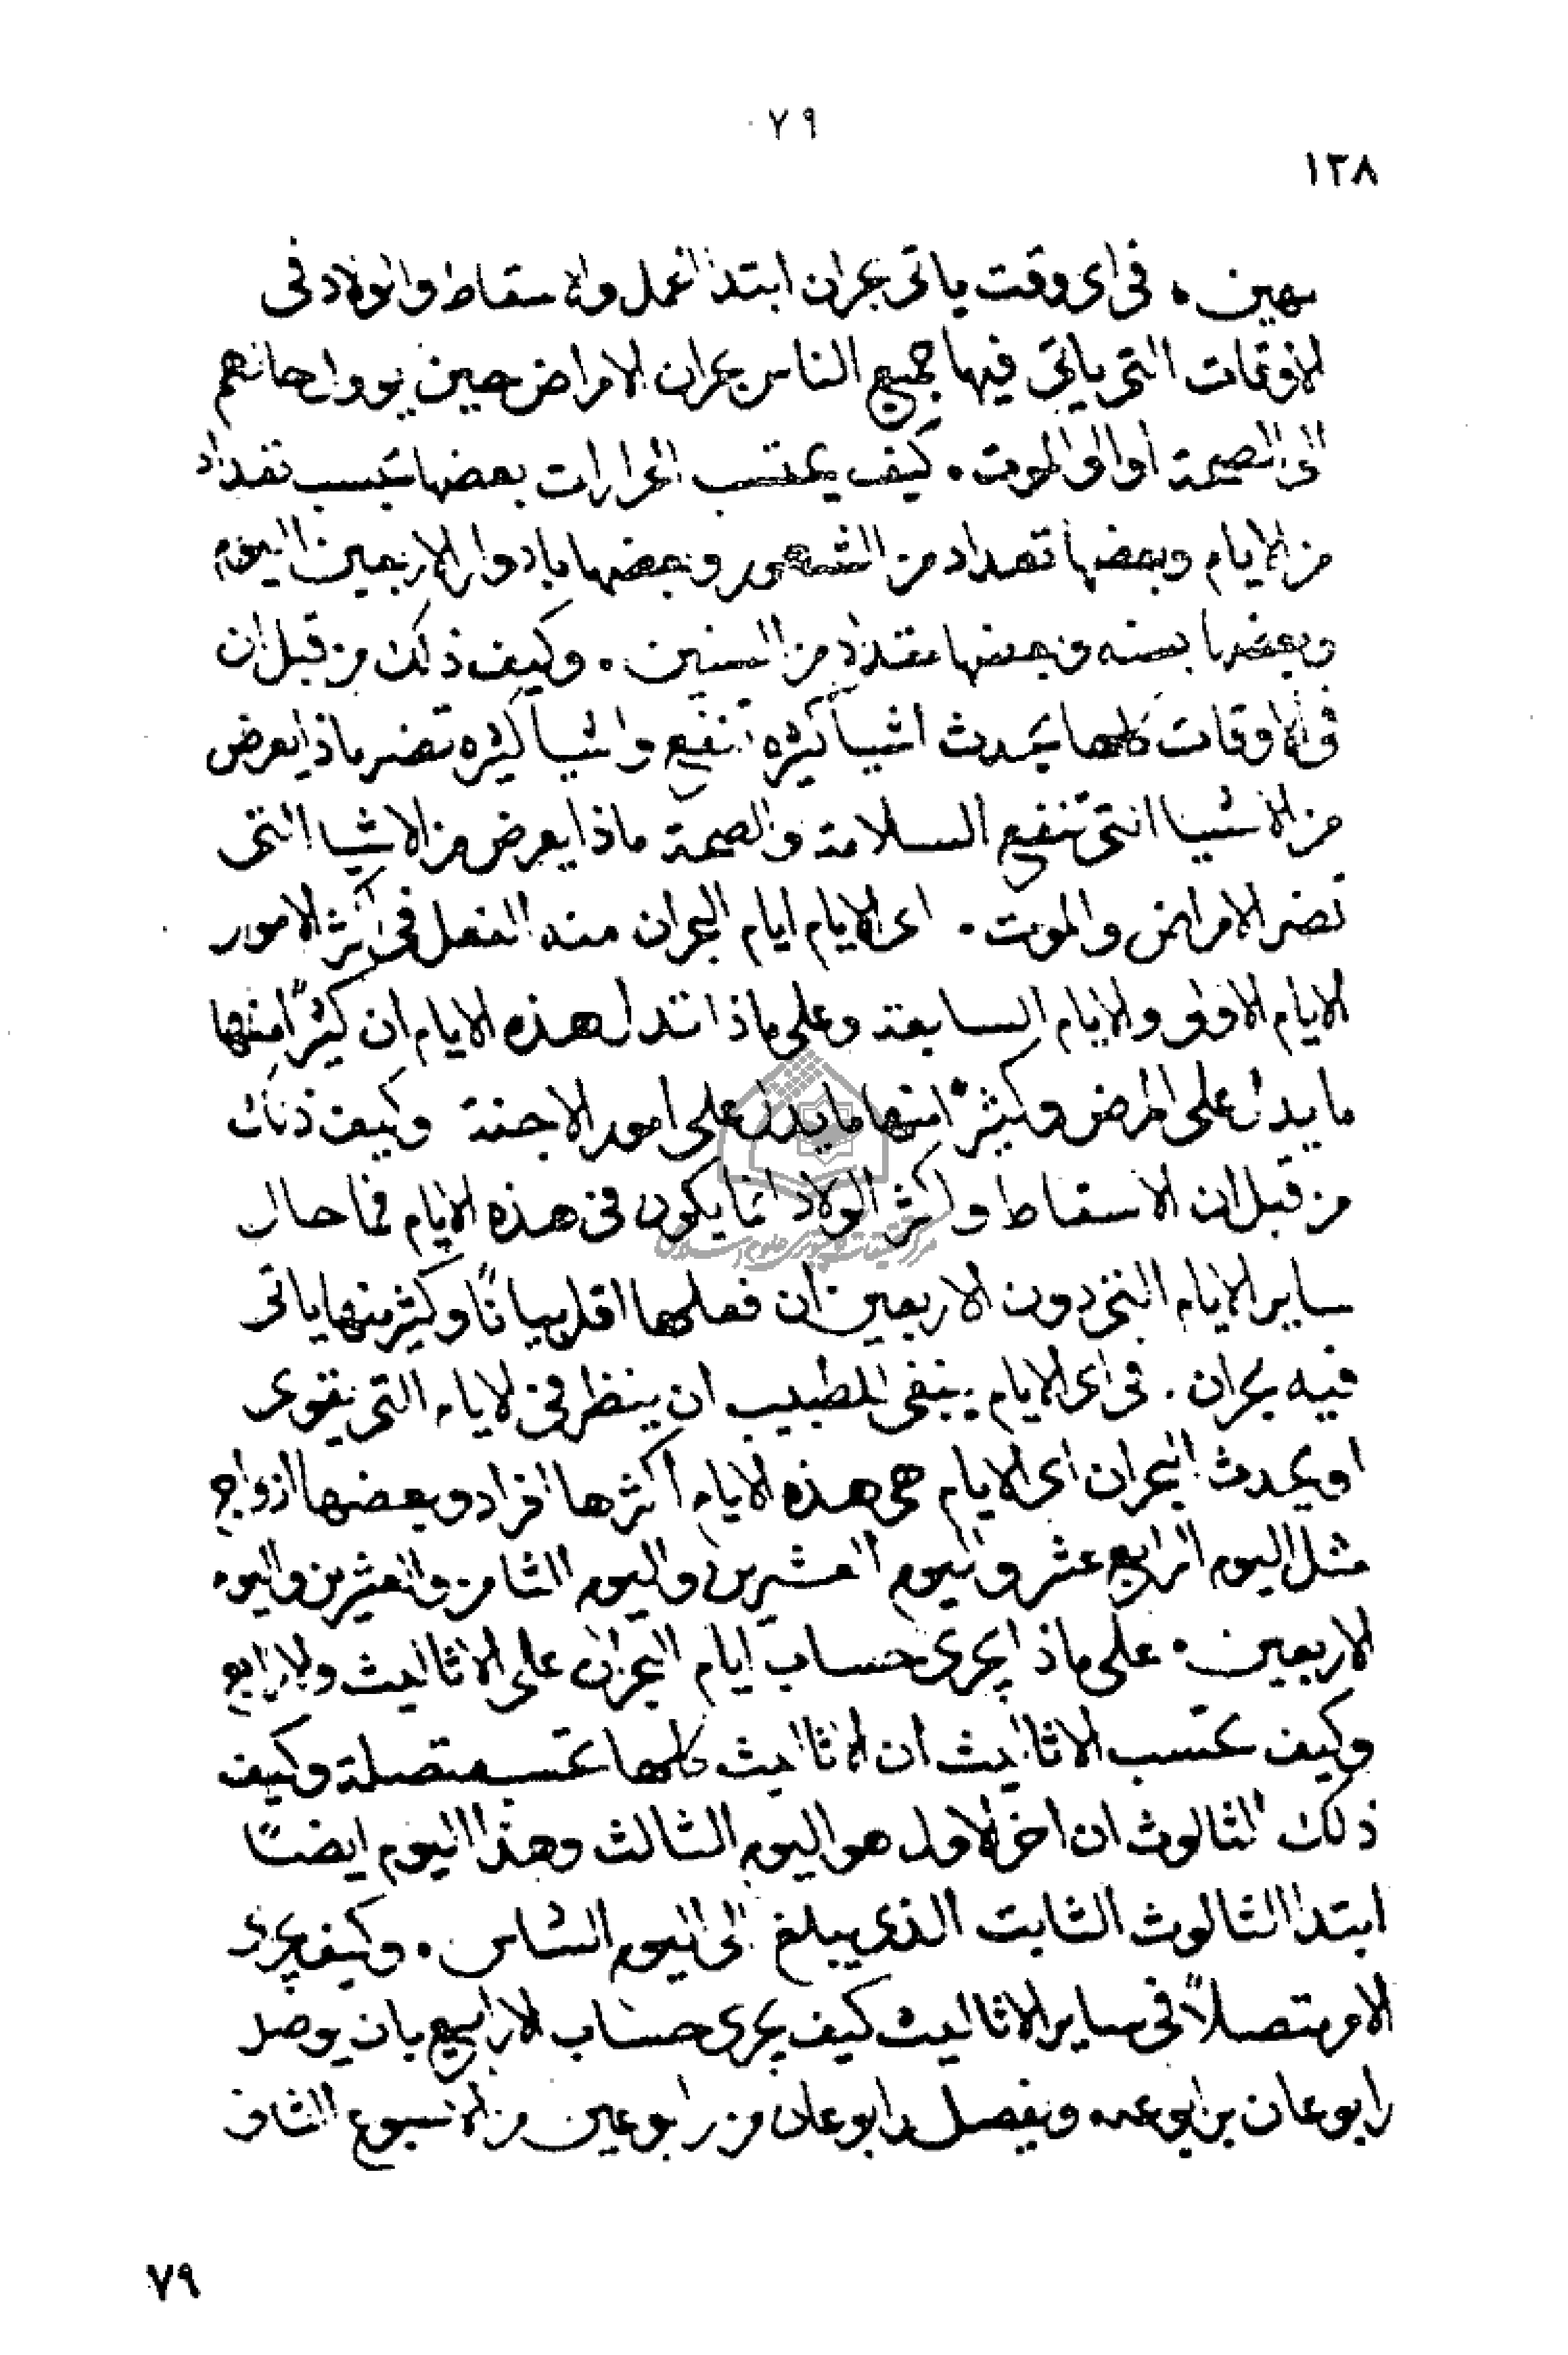 ٧٩
١٣٨
بهين ۰ فى اى وقت ياتى بحران ابتدا الحمل والاسقاط والولاد فى
الاوقات التى ياتى فيها جميع الناس بحران الامراض حين يووا حالهم
الى الصحة او الى الموت ۰ كيف يحتسب الحرارات بعضها يحتسب تعداد
من الايام وبعضها تعداد من الشهور وبعضها بادوار الاربعين اليوم
وبعضها بسنه وبعضها بتعداد من السنين ۰ وكيف ذلك من قبل ان
فى الاوقات كلها يحدث اشيا كثيره تنفع واشيا كثيره تضر ماذا يعرض
من الاشيا التى تنفع السلامة والصحة ماذا يعرض من الاشيا التى
تضر الامراض والموت ۰ اى الايام ايام البحران منه الفعل فى اكثر الامور
الايام الاول والايام السابعة وعلى ماذا تدل هذه الايام ان كثيرًا منها
ما يدل على المرض وكثيرًا منها ما يدل على امور الاجنة وكيف ذلك
من قبل ان الاسقاط واكثر الولاد انما يكون فى هذه الايام فما حال
ساير الايام التى دون الاربعين ان فعلها اقل بيانًا وكثير منها ياتى
فيه بحران . فى اى الايام ينبغى للطبيب ان ينظر فى الايام التى يقوى
او يحدث البحران اى الايام هى هذه الايام اكثرها افراد وبعضها ازواج
مثل اليوم الرابع عشر واليوم العشرين واليوم الثامن والعشرين واليوم
الاربعين ۰ على ماذا يجرى حساب ايام البحران على الاثاليث والارابع
وكيف تحتسب الاثاليث ان الاثاليث كلها تحتسب متصلة وكيف
ذلك الثالوث ان اخر الاول هو اليوم الثالث وهذا اليوم ايضًا
ابتدا الثالوث الثابت الذى يبلغ الى اليوم الشاس ۰ وكيف يجرى
الامر متصلاً فى ساير الاثاليث كيف يجرى حساب الارابيع بان يوصل
رابوعان برابوعه ويفصل رابوعان من رابوعين من الاسبوع الثانى
٧٩